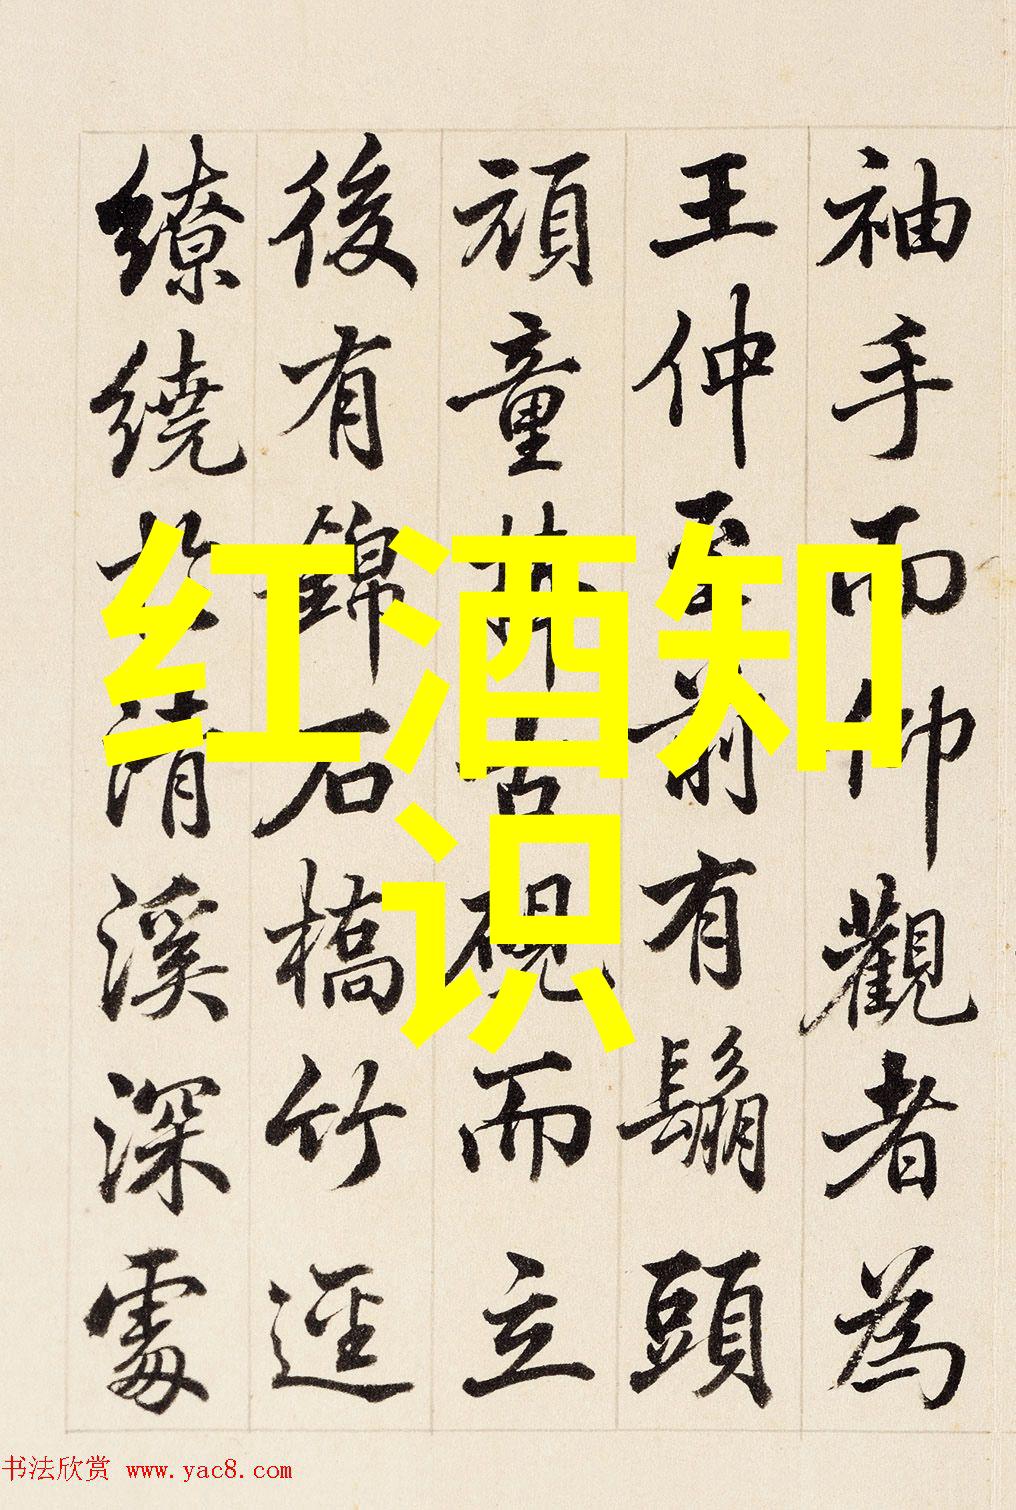 袖手而仰觀者為
王仲至前有鬅頭
頑童捧古硯而立
後有錦石橋竹逕
繚繞於清溪深處
红酒知
识
书法欣赏 www.yac8.com